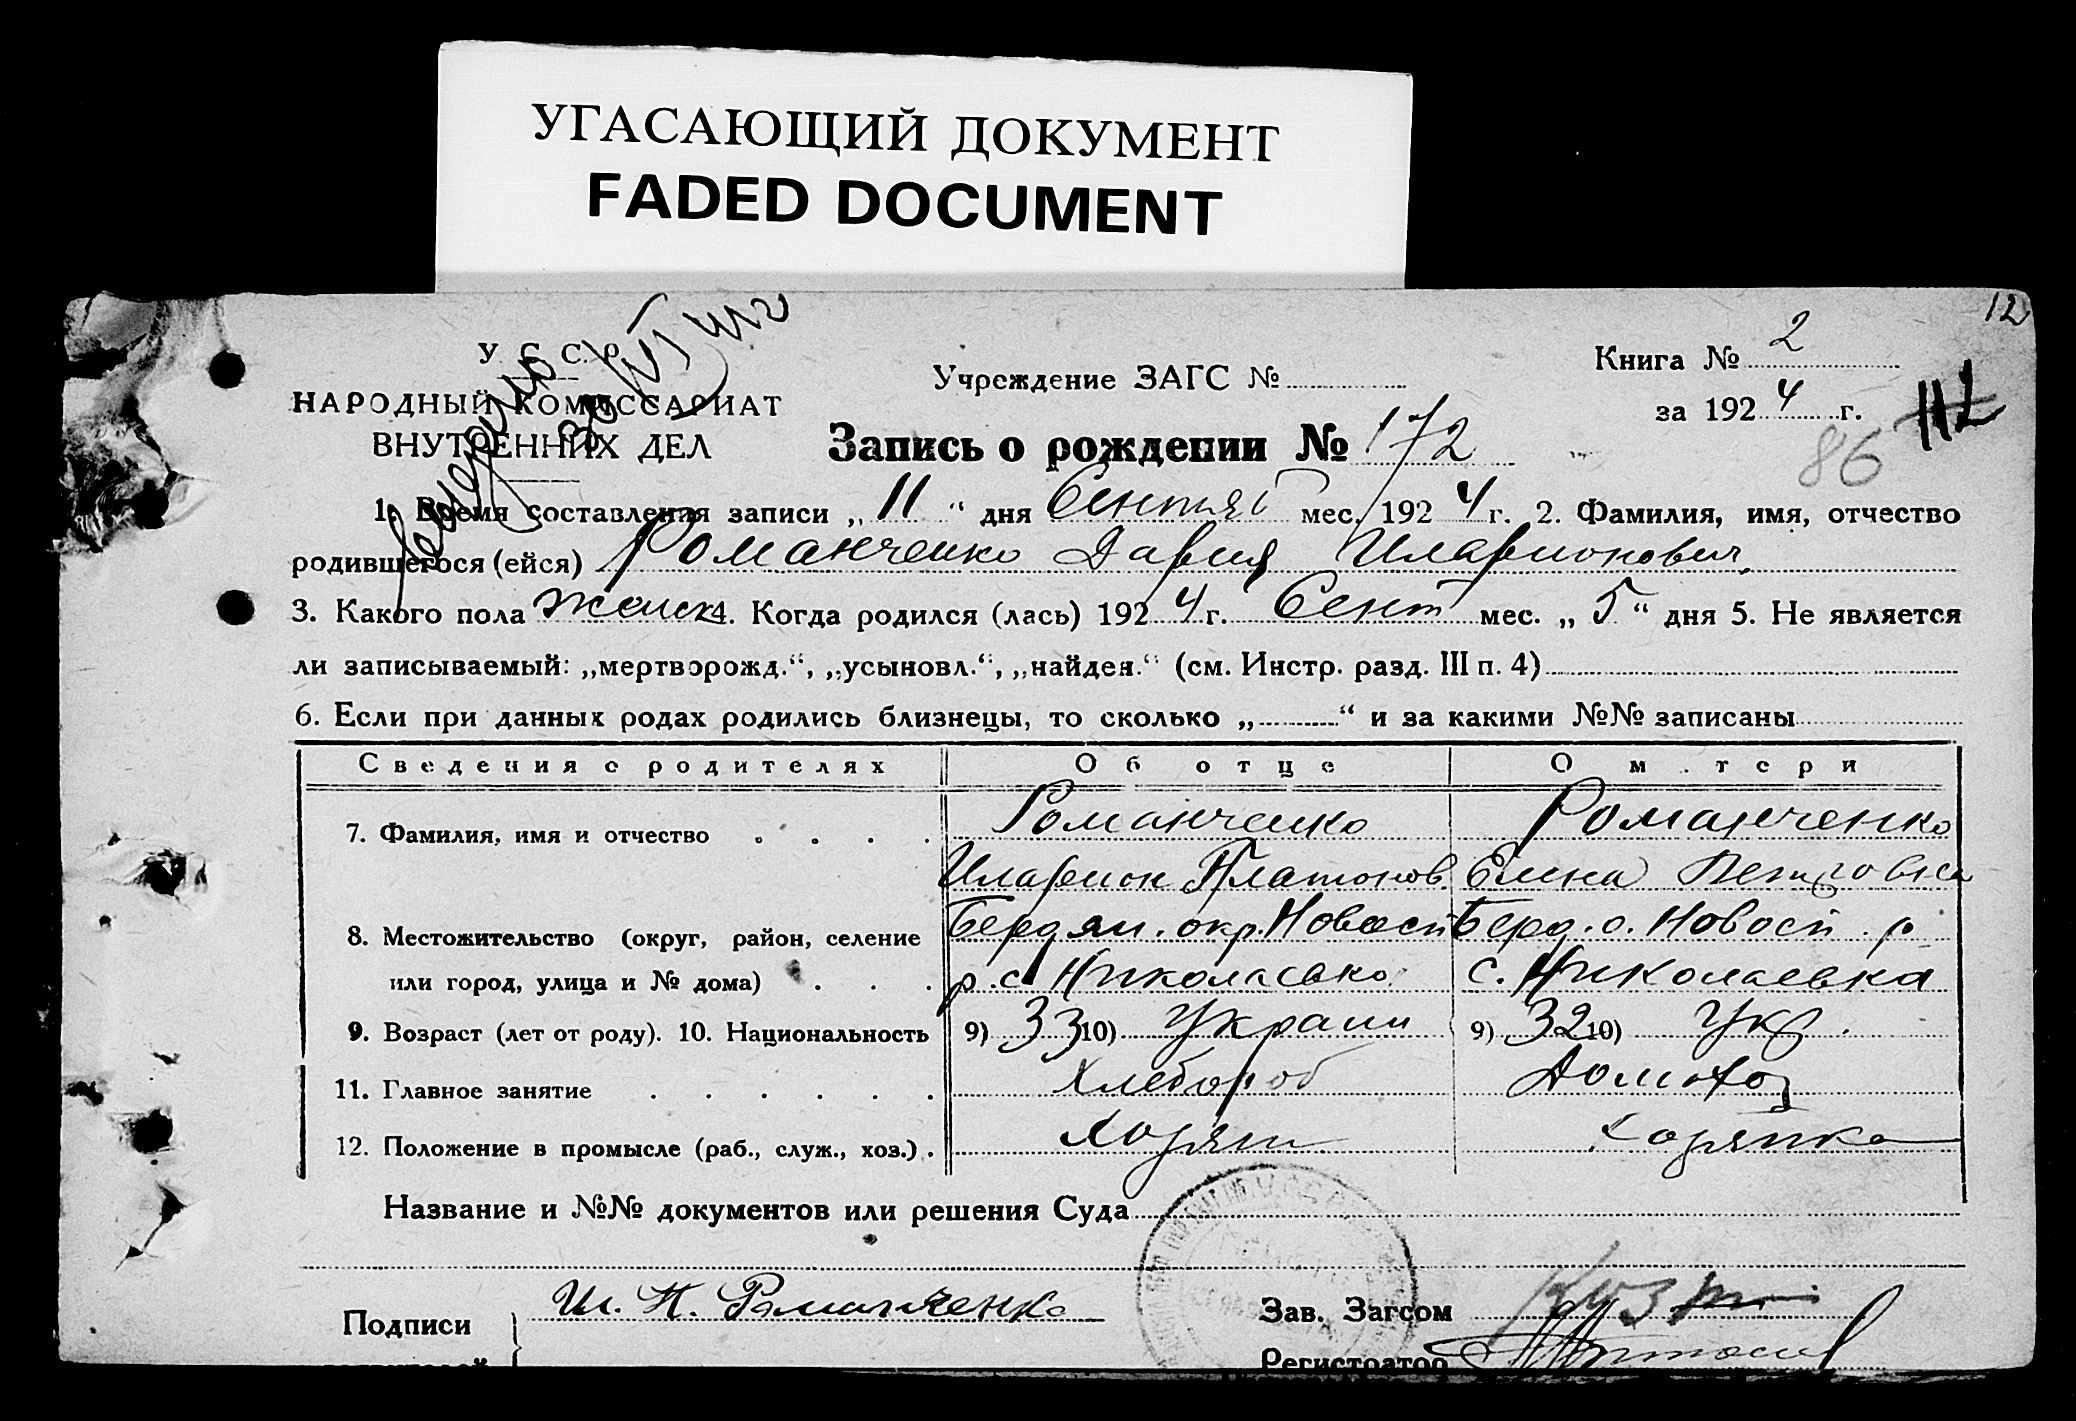 УГАСАЮЩИЙ ДОКУМЕНТ
FADED DOCUMENT
12
У. С. С. Р.
НАРОДНЫЙ КОМИССАРИАТ
ВНУТРЕННИХ ДЕЛ
Учреждение ЗАГС №
Книга № 2
за 1924 г.
112
86
Запись о рождении № 172
1. Время составления записи „11“ дня Сентяб мес. 1924 г. 2. Фамилия, имя, отчество
родившегося (ейся) Романченко Дария Иларионович
3. Какого пола женск 4. Когда родился (лась) 1924 г. Сент мес. „5“ дня 5. Не является
ли записываемый: „мертворожд.“, „усыновл.“, „найден.“ (см. Инстр. разд. III п. 4)
6. Если при данных родах родились близнецы, то сколько „ “ и за какими №№ записаны
Сведения о родителях Об отце О матери
7. Фамилия, имя и отчество Романченко Романченко
Иларион Платонов Елена Петровна
8. Местожительство (округ, район, селение Бердян. окр. Новосп Берд. о. Новосп. р
или город, улица и № дома) р. с. Николаевка с. Николаевка
9. Возраст (лет от роду). 10. Национальность 9) 33 10) Украин 9) 32 10) Укр.
11. Главное занятие Хлебороб Домохоз
12. Положение в промысле (раб., служ., хоз.)
Название и №№ документов или решения Суда
Подписи И. П. Романченко Зав. Загсом
Регистратор